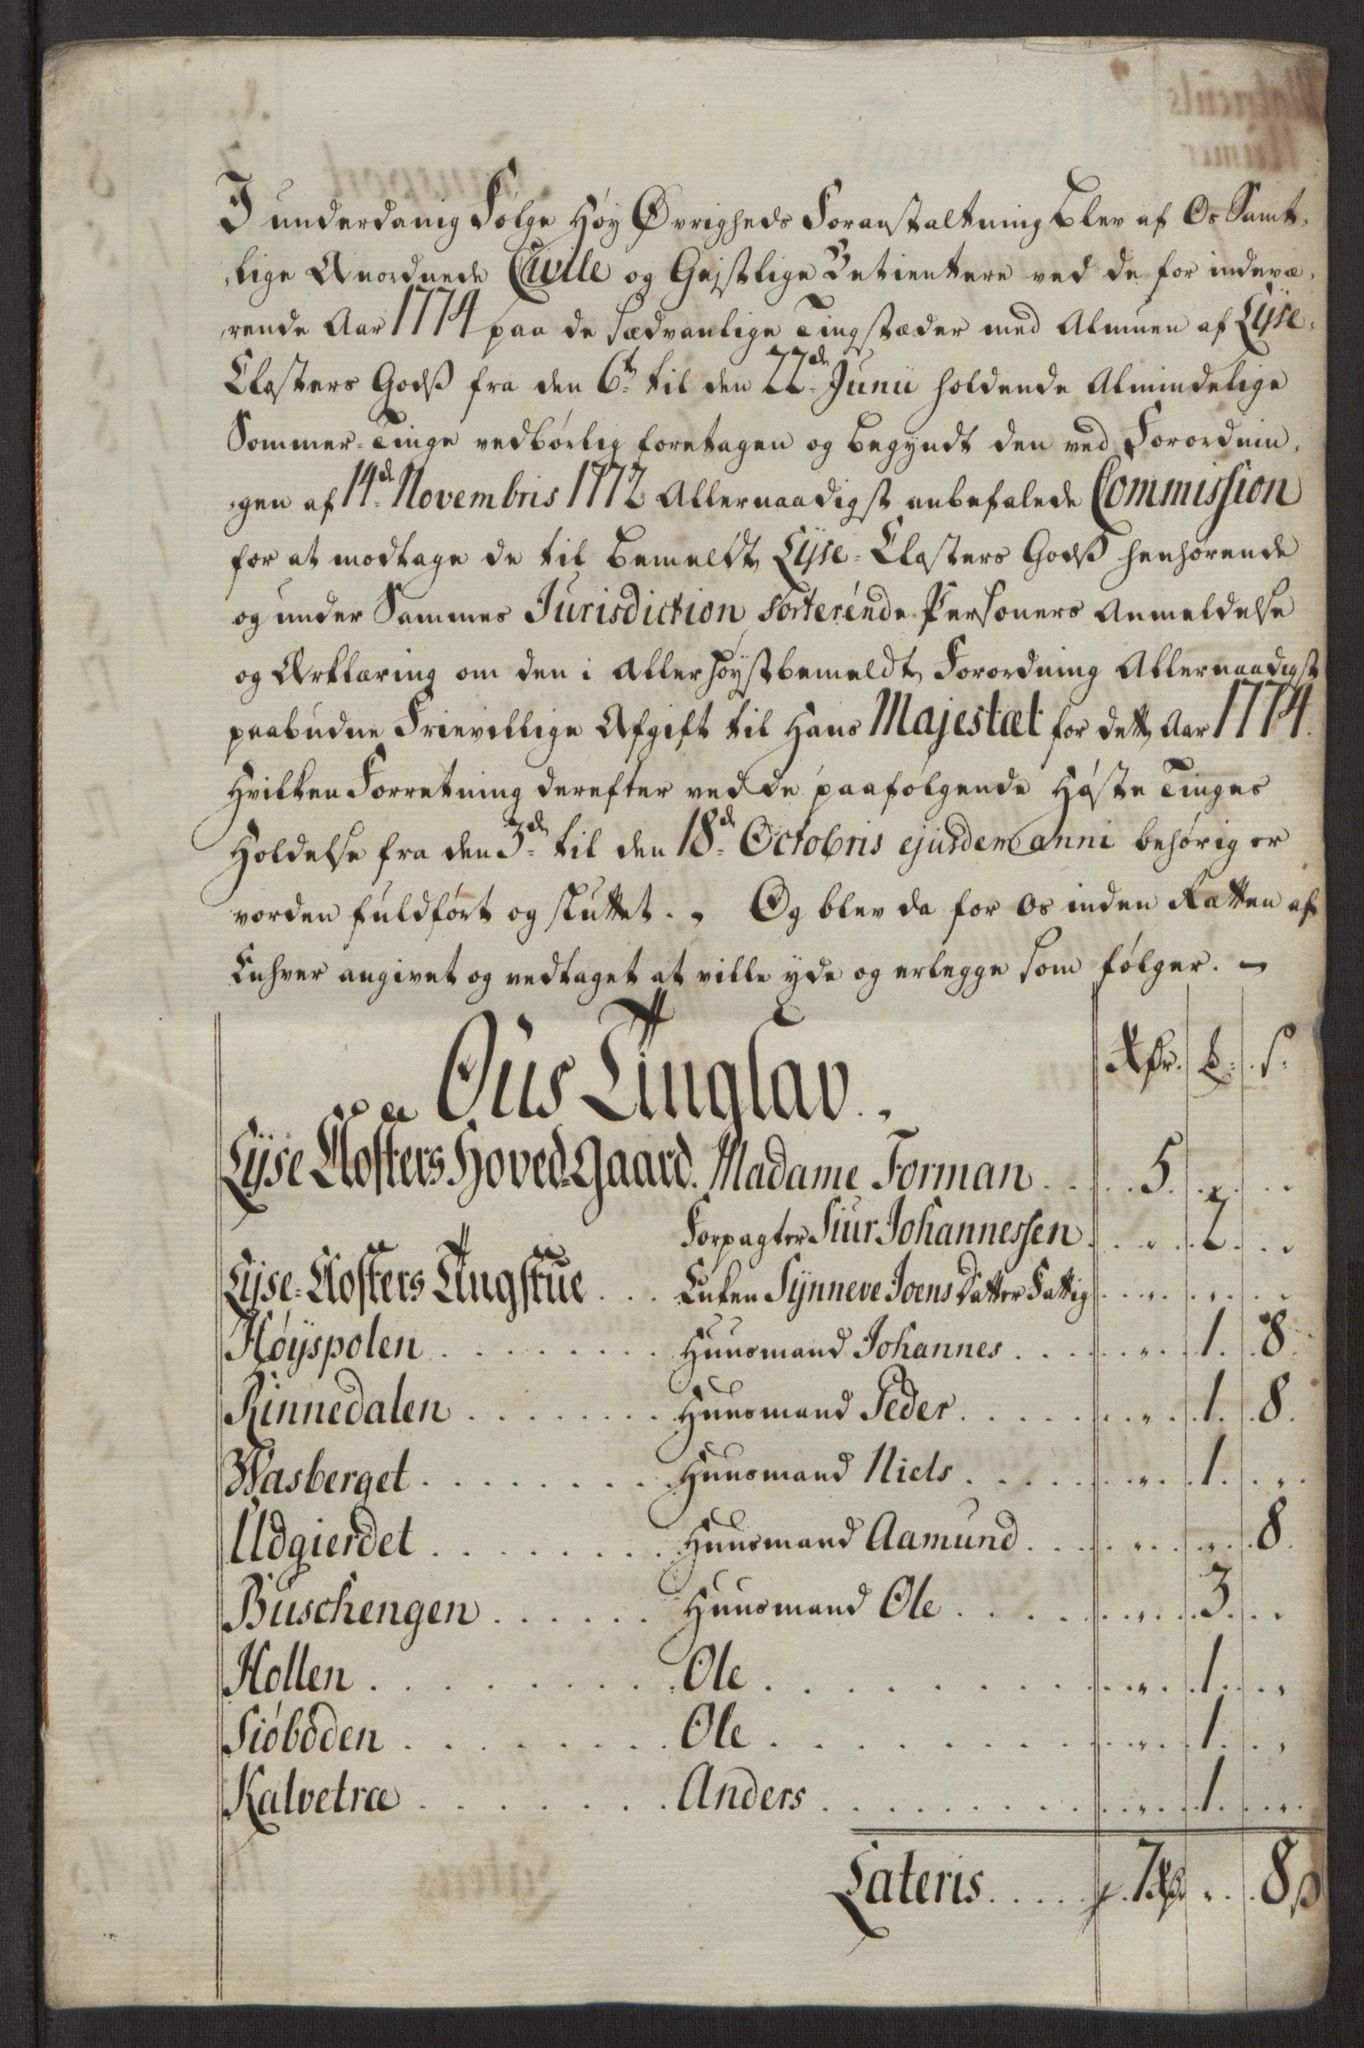 I underdanig Følge Høy Øvrigheds Foranstaltning blev af Os Samt-
-lige Anordnede Civile og Gejstlige Betientere ved de for indevæ-
-rende Aar 1774 paa de sædvanlige Tingstæder med Almuen af Lyse-
Closters Godß fra den 6t til den 22de Junii holdende Almindelige
Sommer-Tinge vedbørlig foretagen og begyndt den ved Forordnin-
-gen af 14de Novembris 1772 Allernaadigst anbefalede Commission
for at modtage de til bemeldte Lyse-Closters Godß henhørende
og under Sammes Jurisdiction sorterénde Personers Anmeldelse
og Erklæring om den i allerhøystbemeldte Forordning Allernaadigst
paabudne Frievillige Afgift til Hans Majestæt for dette Aar 1774.
Hvilken Forretning derefter ved de paafølgende Høste Tinges
Holdelse fra den 3de til den 18de Octobris ejusdem anni behørig er
vorden fuldført og sluttet. Og blev da for os inden Rætten af
Enhver angivet og vedtaget at ville yde og erlegge som følger.
Ous Tinglav. Rdr. ß. s.
Lyse Closters Hoved-Gaard. Madame Forman 5
Forpagter Siur Johannessen 2
Lyse-Closters Tingstue Enken Synneve Joens Datter Fattig
Høyspolen Huusmand Johannes 1 8
Rinnedalen Huusmand Peder 1 8
Wasberget Huusmand Niels 1
Udgierdet Huusmand Aamund 8
Buschengen Huusmand Ole 3
Hollen Ole 1
Siøboden Ole 1
Kalvetræ Anders 1
Lateris 7 Rdr 8 s